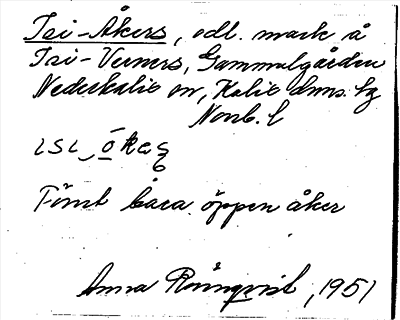 Isi-Åkers, odl. mark å
Isi-Verners, Gammalgården
Nederkalix sn, Kalix dms. hg
Norrb. l
Förut bara öppen åker
Anna Rönnqvist, 1951